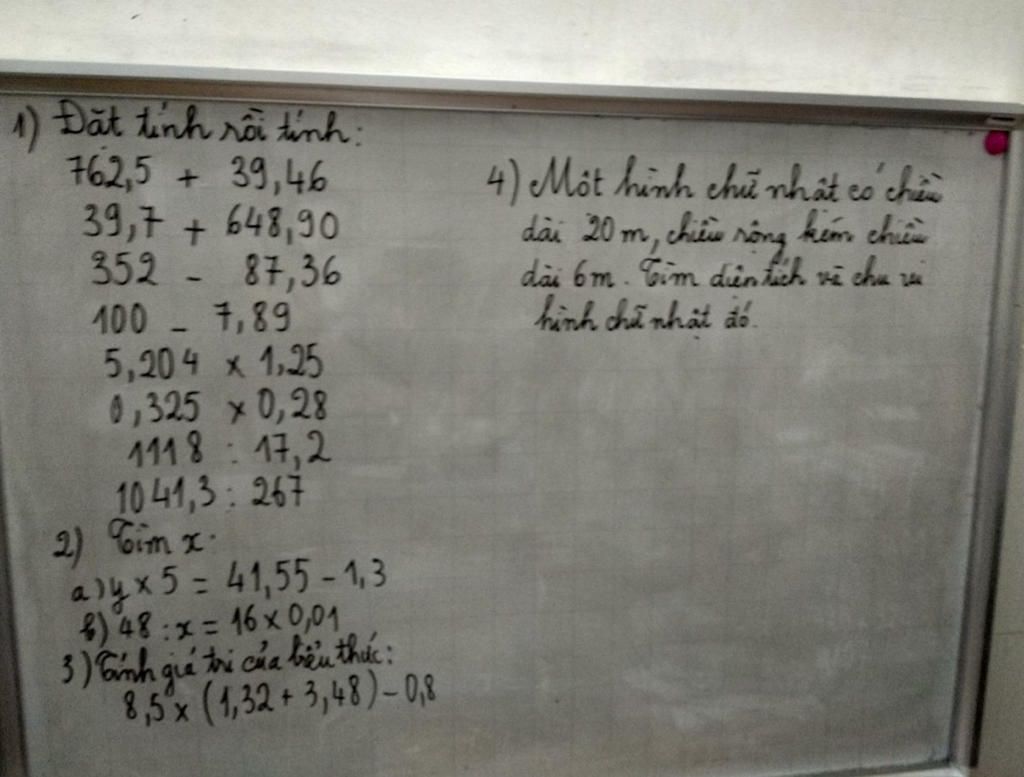 1) Đặt tính rồi tính:
762,5 + 39,46
39,7 + 648,90
352 - 87,36
100 - 7,89
5,204 x 1,25
0,325 x 0,28
1118 : 17,2
1041,3 : 267
2) Tìm x:
a) y x 5 = 41,55 - 1,3
b) 48 : x = 16 x 0,01
3) Tính giá trị của biểu thức:
8,5 x (1,32 + 3,48) - 0,8
4) Một hình chữ nhật có chiều
dài 20 m, chiều rộng kém chiều
dài 6m. Tìm diện tích và chu vi
hình chữ nhật đó.